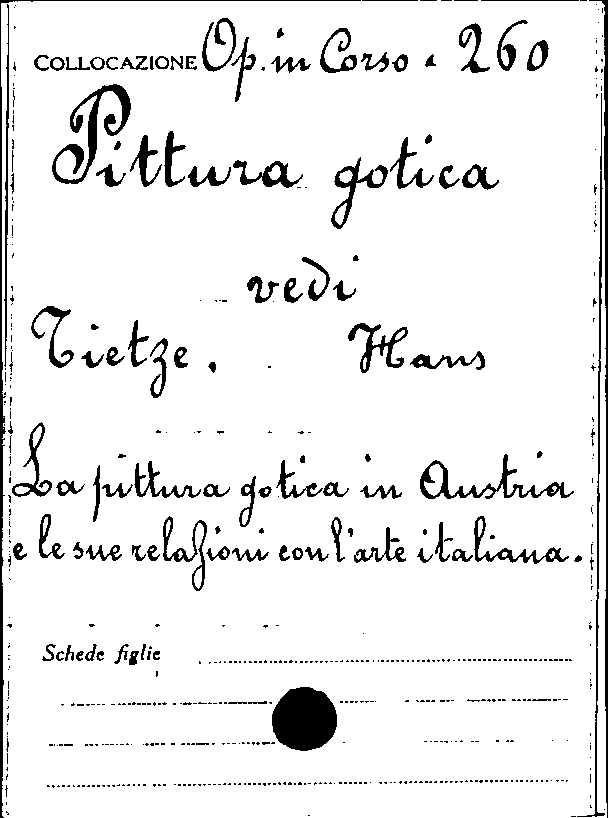 COLLOCAZIONE Op. in Corso - 260
Pittura gotica
vedi
Tietze. Hans
La pittura gotica in Austria
e le sue relazioni con l'arte italiana.
Schede figlie